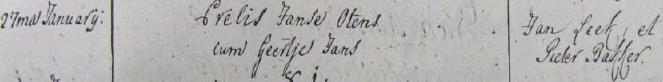 27ma January:
Crelis Janse Otens
cum Geertje Jans
Jan Leek, et
Pieter Bakker.